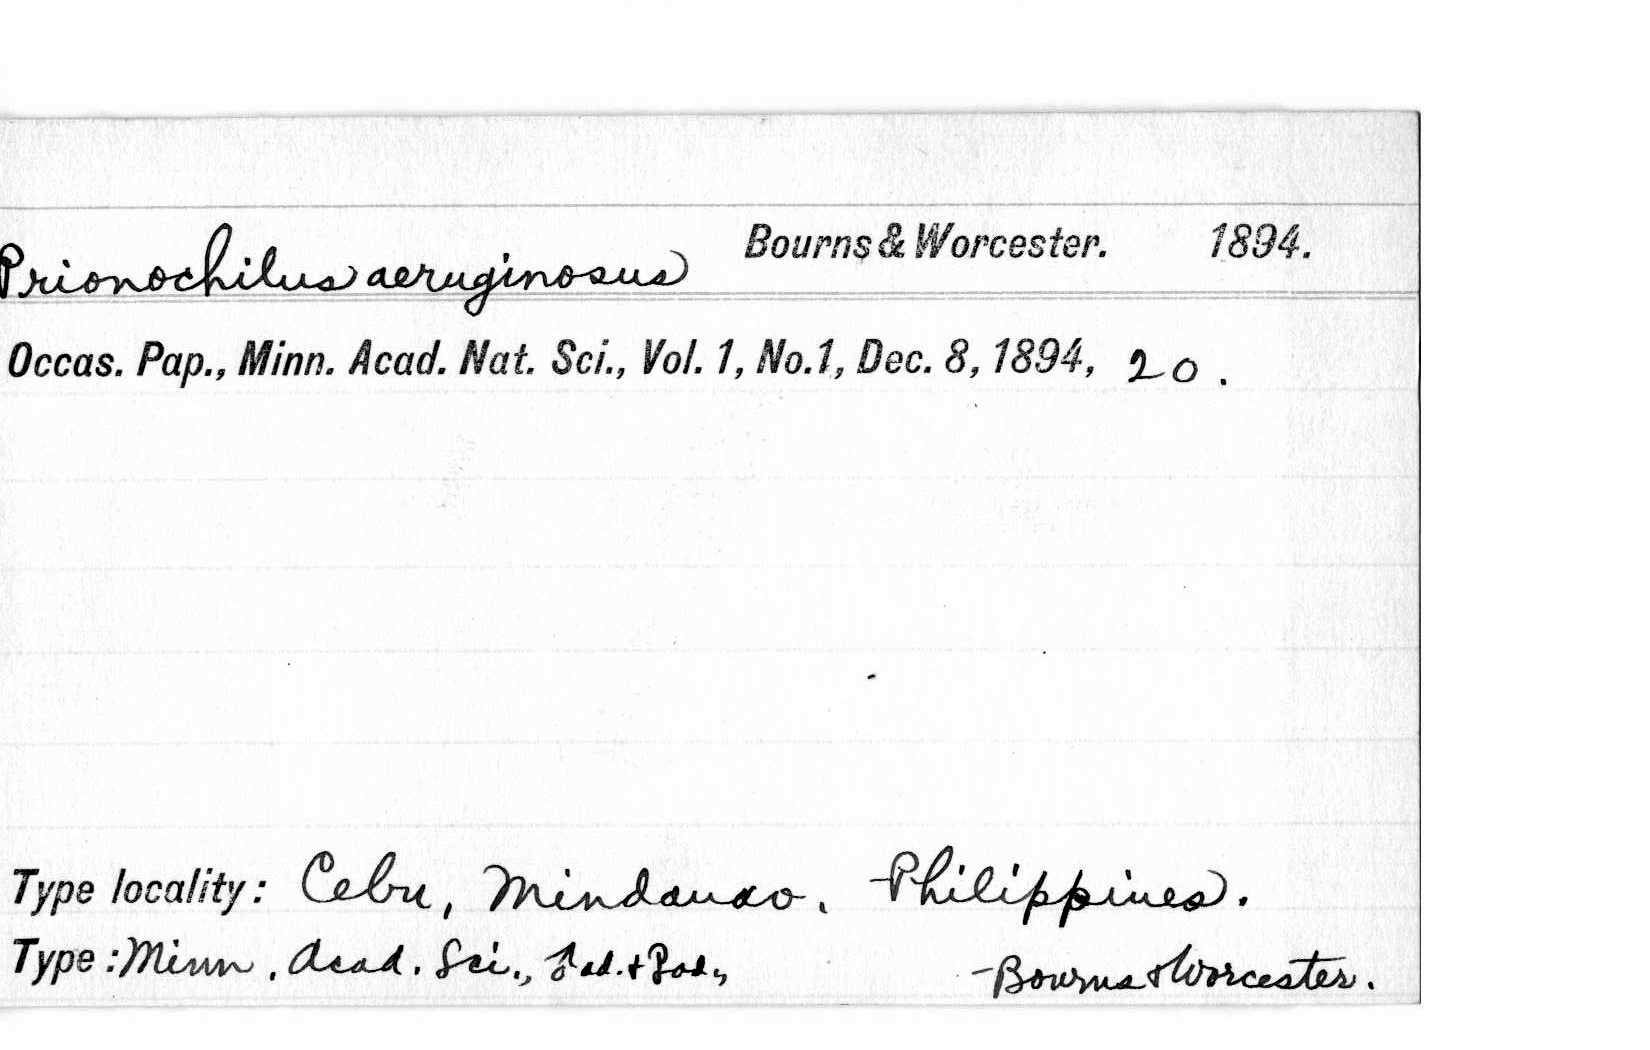 Prionochilus aeruginosus Bourns & Worcester. 1894.
Occas. Pap., Minn. Acad. Nat. Sci., Vol. 1, No. 1, Dec. 8, 1894, 20.
Type locality: Cebu, Mindanao, Philippines.
Type: Minn. Acad. Sci., ♂ad. + ♀ad., -Bourns & Worcester.